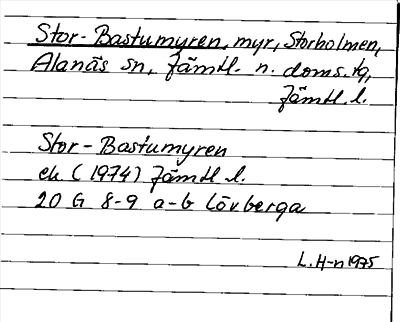 Stor-Bastumyren, myr, Storholmen,
Alanäs sn, Jämtl. n. doms.tg,
Jämtl.l.
Stor-Bastumyren
ek (1974) Jämtl l.
20 G 8-9 a-b Lövberga
L.H-n 1975